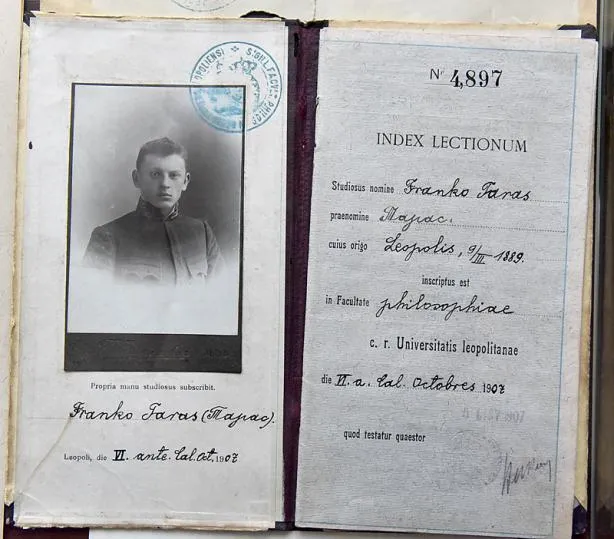 Propria manu studiosus subscribit.
Franko Taras (Тарас).
Leopoli, die VI. ante. Cal. Oct. 1907
Nr 4,897
INDEX LECTIONUM
Studiosus nomine Franko Taras
praenomine Тарас.
cuius origo Leopolis, 9/III 1889.
inscriptus est
in Facultate philosophiae
c. r. Universitatis leopolitanae
die VI. a. Cal. Octobres 1907
quod testatur quaestor